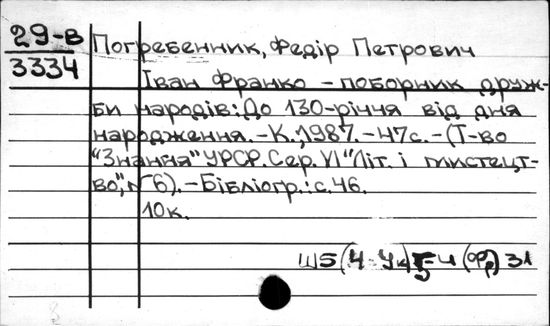 29-В
3334
Погребенник, Федір Петрович
Іван Франко – поборник друж-
би народів: До 130-річчя від дня
народження. – К., 1987. – 47с. – (Т-во
"Знання" УРСР. Сер. VI "Літ. і мистецт-
во", № 6). – Бібліогр.: с. 46.
10к.
Ш5(4-Ук) -4 (Фр) 31